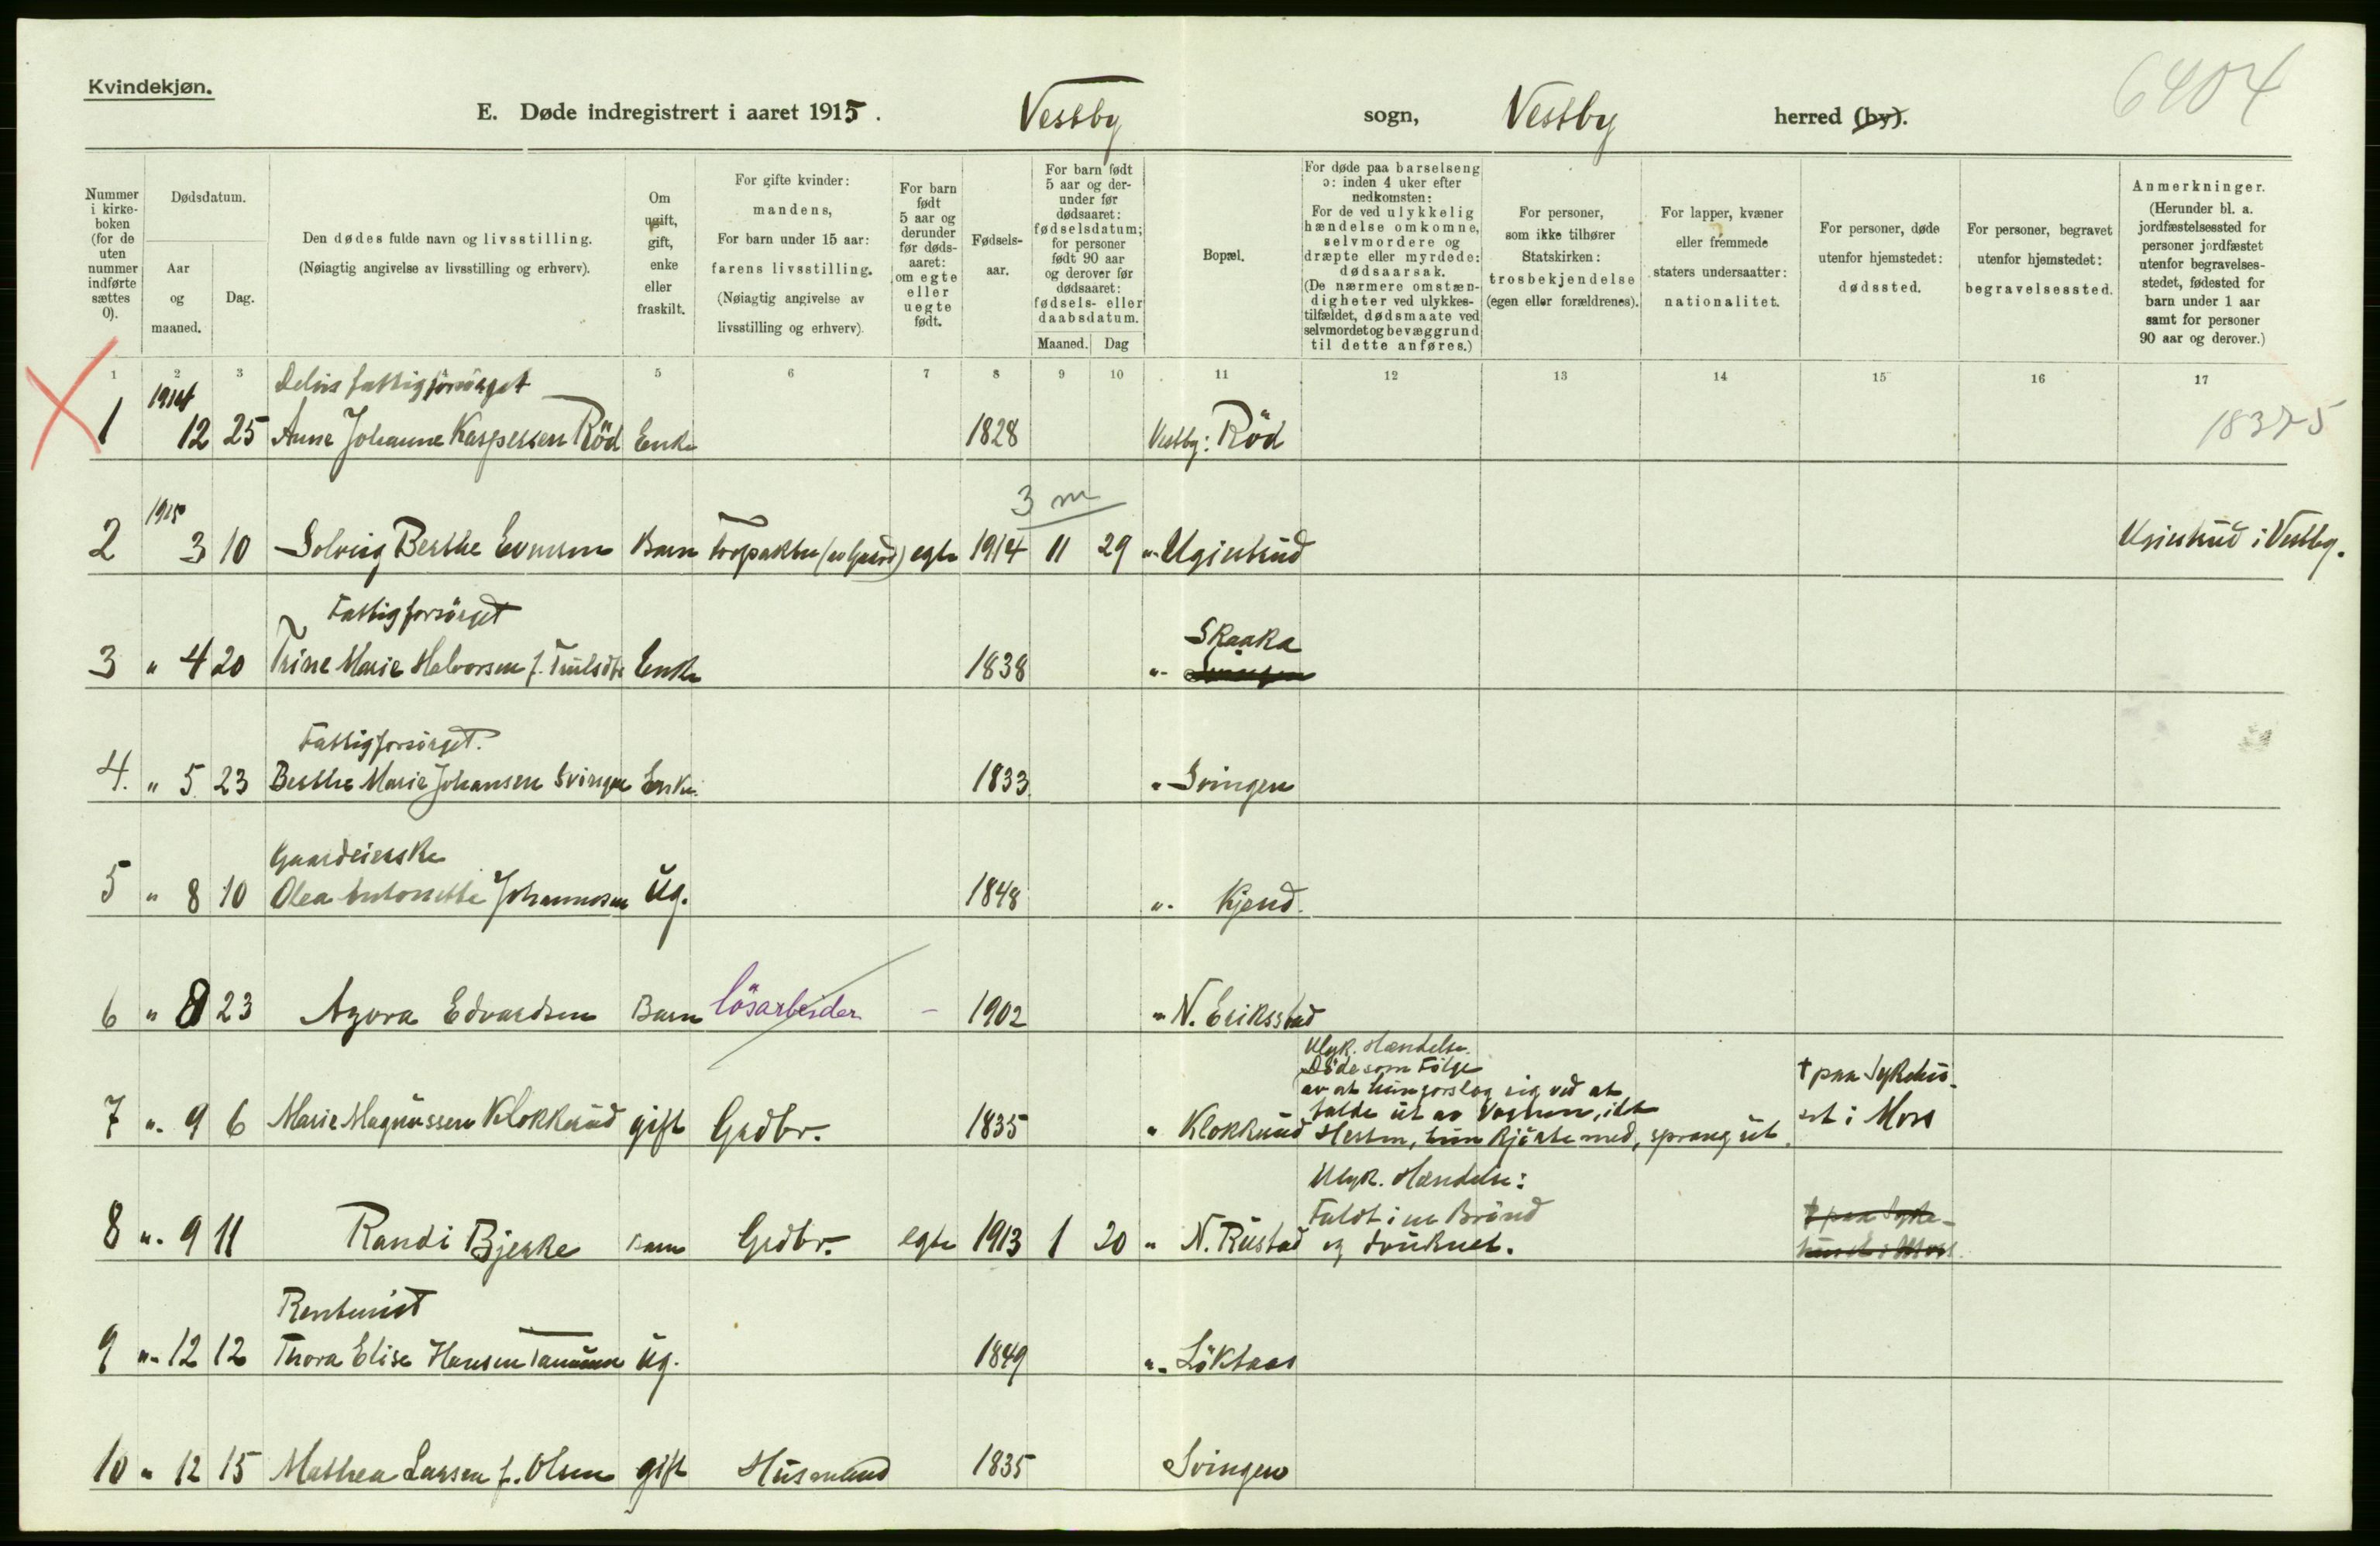 Kvindekjøn.
6404
E. Døde indregistrert i aaret 1915. Vestby sogn, Vestby herred (by).
Nummer i kirkeboken (for de uten nummer indførte sættes 0).
Dødsdatum.
Aar og maaned.
Dag.
Den dødes fulde navn og livsstilling.
(Nøiagtig angivelse av livsstilling og erhverv).
Om ugift, gift, enke eller fraskilt.
For gifte kvinder: mandens,
For barn under 15 aar: farens livsstilling.
(Nøiagtig angivelse av livsstilling og erhverv).
For barn født 5 aar og derunder før dødsaaret: om egte eller uegte født.
Fødselsaar.
For barn født 5 aar og derunder før dødsaaret: fødselsdatum; for personer født 90 aar og derover før dødsaaret: fødsels- eller daabsdatum.
Maaned. Dag
Bopæl.
For døde paa barselseng ɔ: inden 4 uker efter nedkomsten:
For de ved ulykkelig hændelse omkomne, selvmordere og dræpte eller myrdede: dødsaarsak.
(De nærmere omstændigheter ved ulykkestilfældet, dødsmaate ved selvmordet og bevæggrund til dette anføres.)
For personer, som ikke tilhører Statskirken: trosbekjendelse (egen eller forældrenes).
For lapper, kvæner eller fremmede staters undersaatter: nationalitet.
For personer, døde utenfor hjemstedet: dødssted.
For personer, begravet utenfor hjemstedet: begravelsessted.
Anmerkninger.
(Herunder bl. a. jordfæstelsessted for personer jordfæstet utenfor begravelsesstedet, fødested for barn under 1 aar samt for personer 90 aar og derover.)
1 2 3 5 6 7 8 9 10 11 12 13 14 15 16 17
1914 Delvis fattigforsörget
1 12 25 Anne Johanne Kaspersen Röd Enke 1828 Vestby: Röd
1915 3 m
2 3 10 Solveig Berthe Evensen Barn egte 1914 11 29 "
i Vestby.
Fattigforsörget
Skaaka
3 " 4 20 Trine Marie Halvorsen f. Enke 1838 "
Fattigforsörget.
4. " 5 23 Berthe Marie Johansen Svingen Enke. 1833 " Svingen
Gaardeierske
5 " 8 10 Olea Antonette Johannesen Ug. 1848 " Kjend.
6 " 8 23 Agora Edvardsen Barn lösarbeider - 1902 " N. Eriksstad
Ulyk. Hændelse.
Döde som Fölge
av at hun forslog sig ved at
falde ut av Vognen, idet
Hesten, hun kjörte med, sprang ut.
7 " 9 6 Marie Magnussen Klokkerud gift Grdbr. 1835 " Klokkerud
† paa Sykehus-
et i Moss
Ulyk. Hændelse:
Faldt i en Brönd
og druknet.
8 " 9 11 Randi Bjerke Barn Grdbr. egte 1913 1 20 " N. Rustad
† paa Syke-
huset i Moss.
Rentenist
9 " 12 12 Thora Elise Hansen Ug. 1849 " Löktaas
10 " 12 15 Mathea Larsen f. Olsen gift Husmand 1835 Svingen